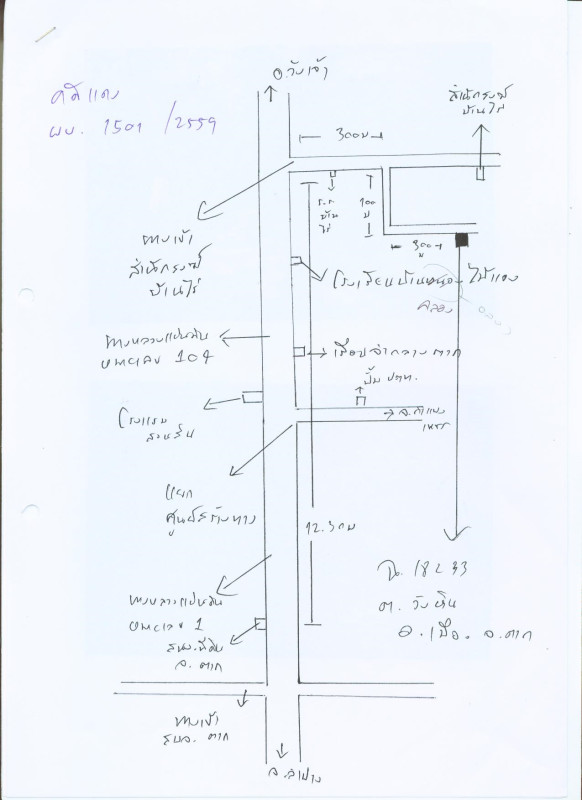 อ.วังเจ้า
คดีแดง
ผบ. 1501 /2559
สำนักสงฆ์
บ้านไร่
300ม
ร.ร
บ้าน
ไร่
100
ม
300
ม
ทางเข้า
สำนักสงฆ์
บ้านไร่
โรงเรียนบ้านหนองไม้แดง
คลอง
ทางหลวงแผ่นดิน
หมายเลข 104
เรือนจำกลาง ตาก
ปั้ม ปตท.
โรงแรม
สวนสิน
จ.กำแพง
เพชร
แยก
12.3กม
ทางหลวงแผ่นดิน
หมายเลข 1
ฉ. 18233
ต. วังหิน
อ. เมือง. จ. ตาก
สนง.ที่ดิน
จ. ตาก
ทางเข้า
ตาก
จ.ลำปาง